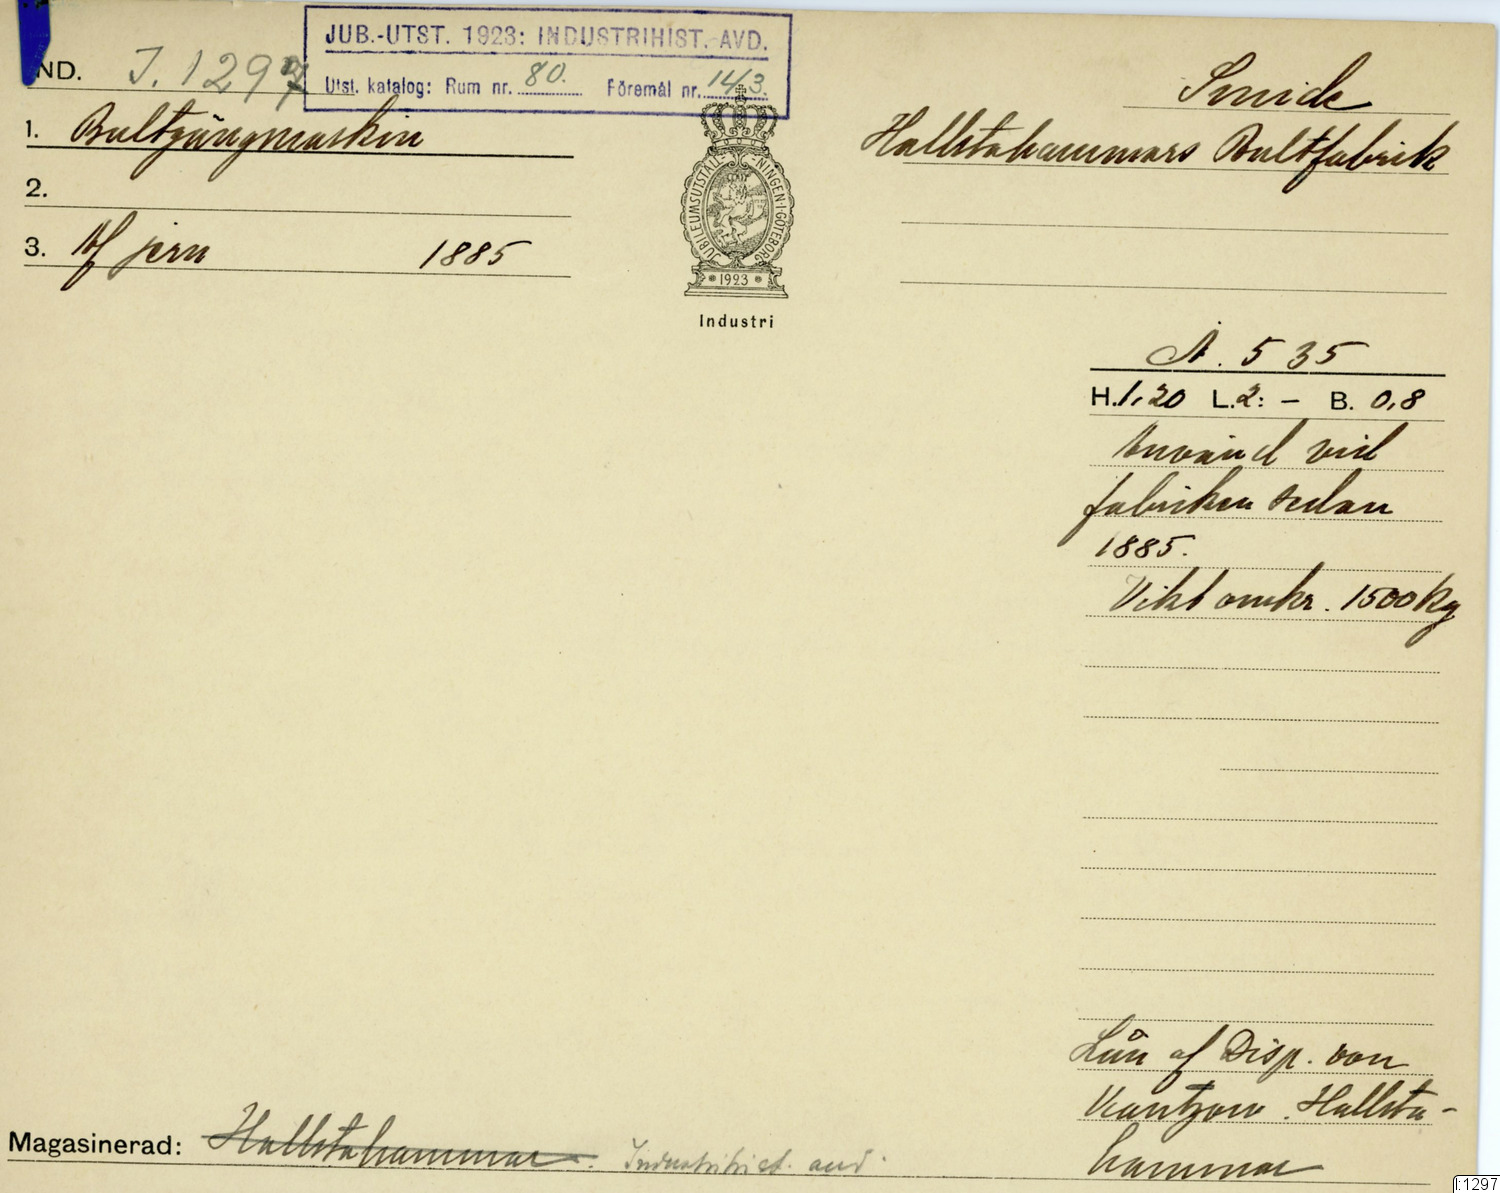 JUB.-UTST. 1923: INDUSTRIHIST. AVD.
Utst. katalog: Rum nr. 80. Föremål nr. 143.
ND. I. 1297
Smide
1. Bultgängmaskin
Hallstahammars Bultfabrik
2.
3. Af jern 1885
JUBILEUMSUTSTÄLLNINGEN·I·GÖTEBORG
1923
Industri
A. 535
H. 1,20 L. 2: – B. 0,8
Använd vid
fabriken sedan
1885.
Vikt omkr. 1500 kg
Lån af Disp. von
Kantzow. Hallsta-
hammar
Magasinerad: Hallstahammar. Industrihist. avd.
I:1297